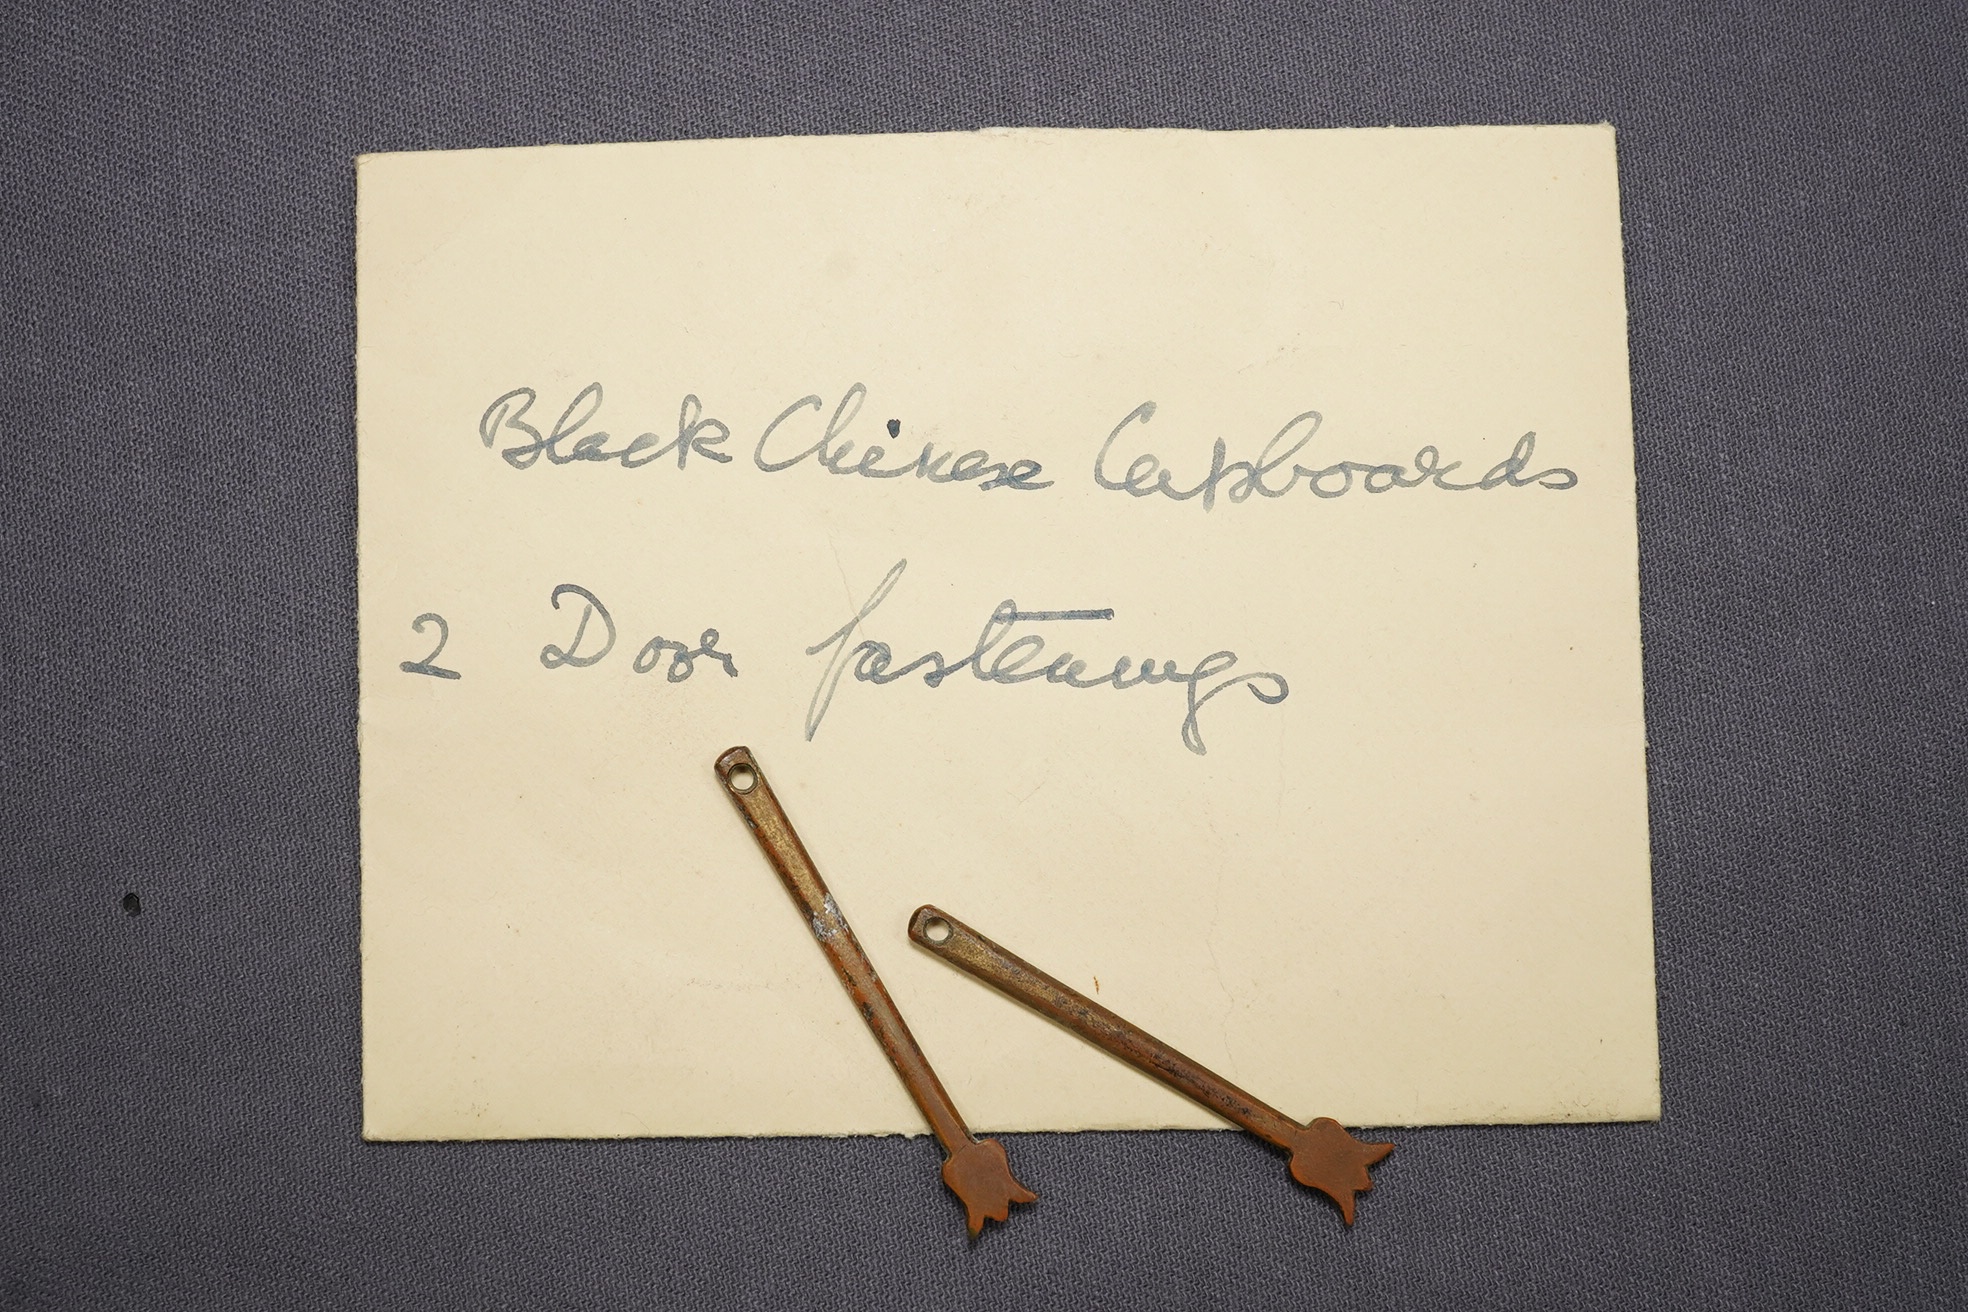 Black Chinese Cupboards
2 Door fastenings